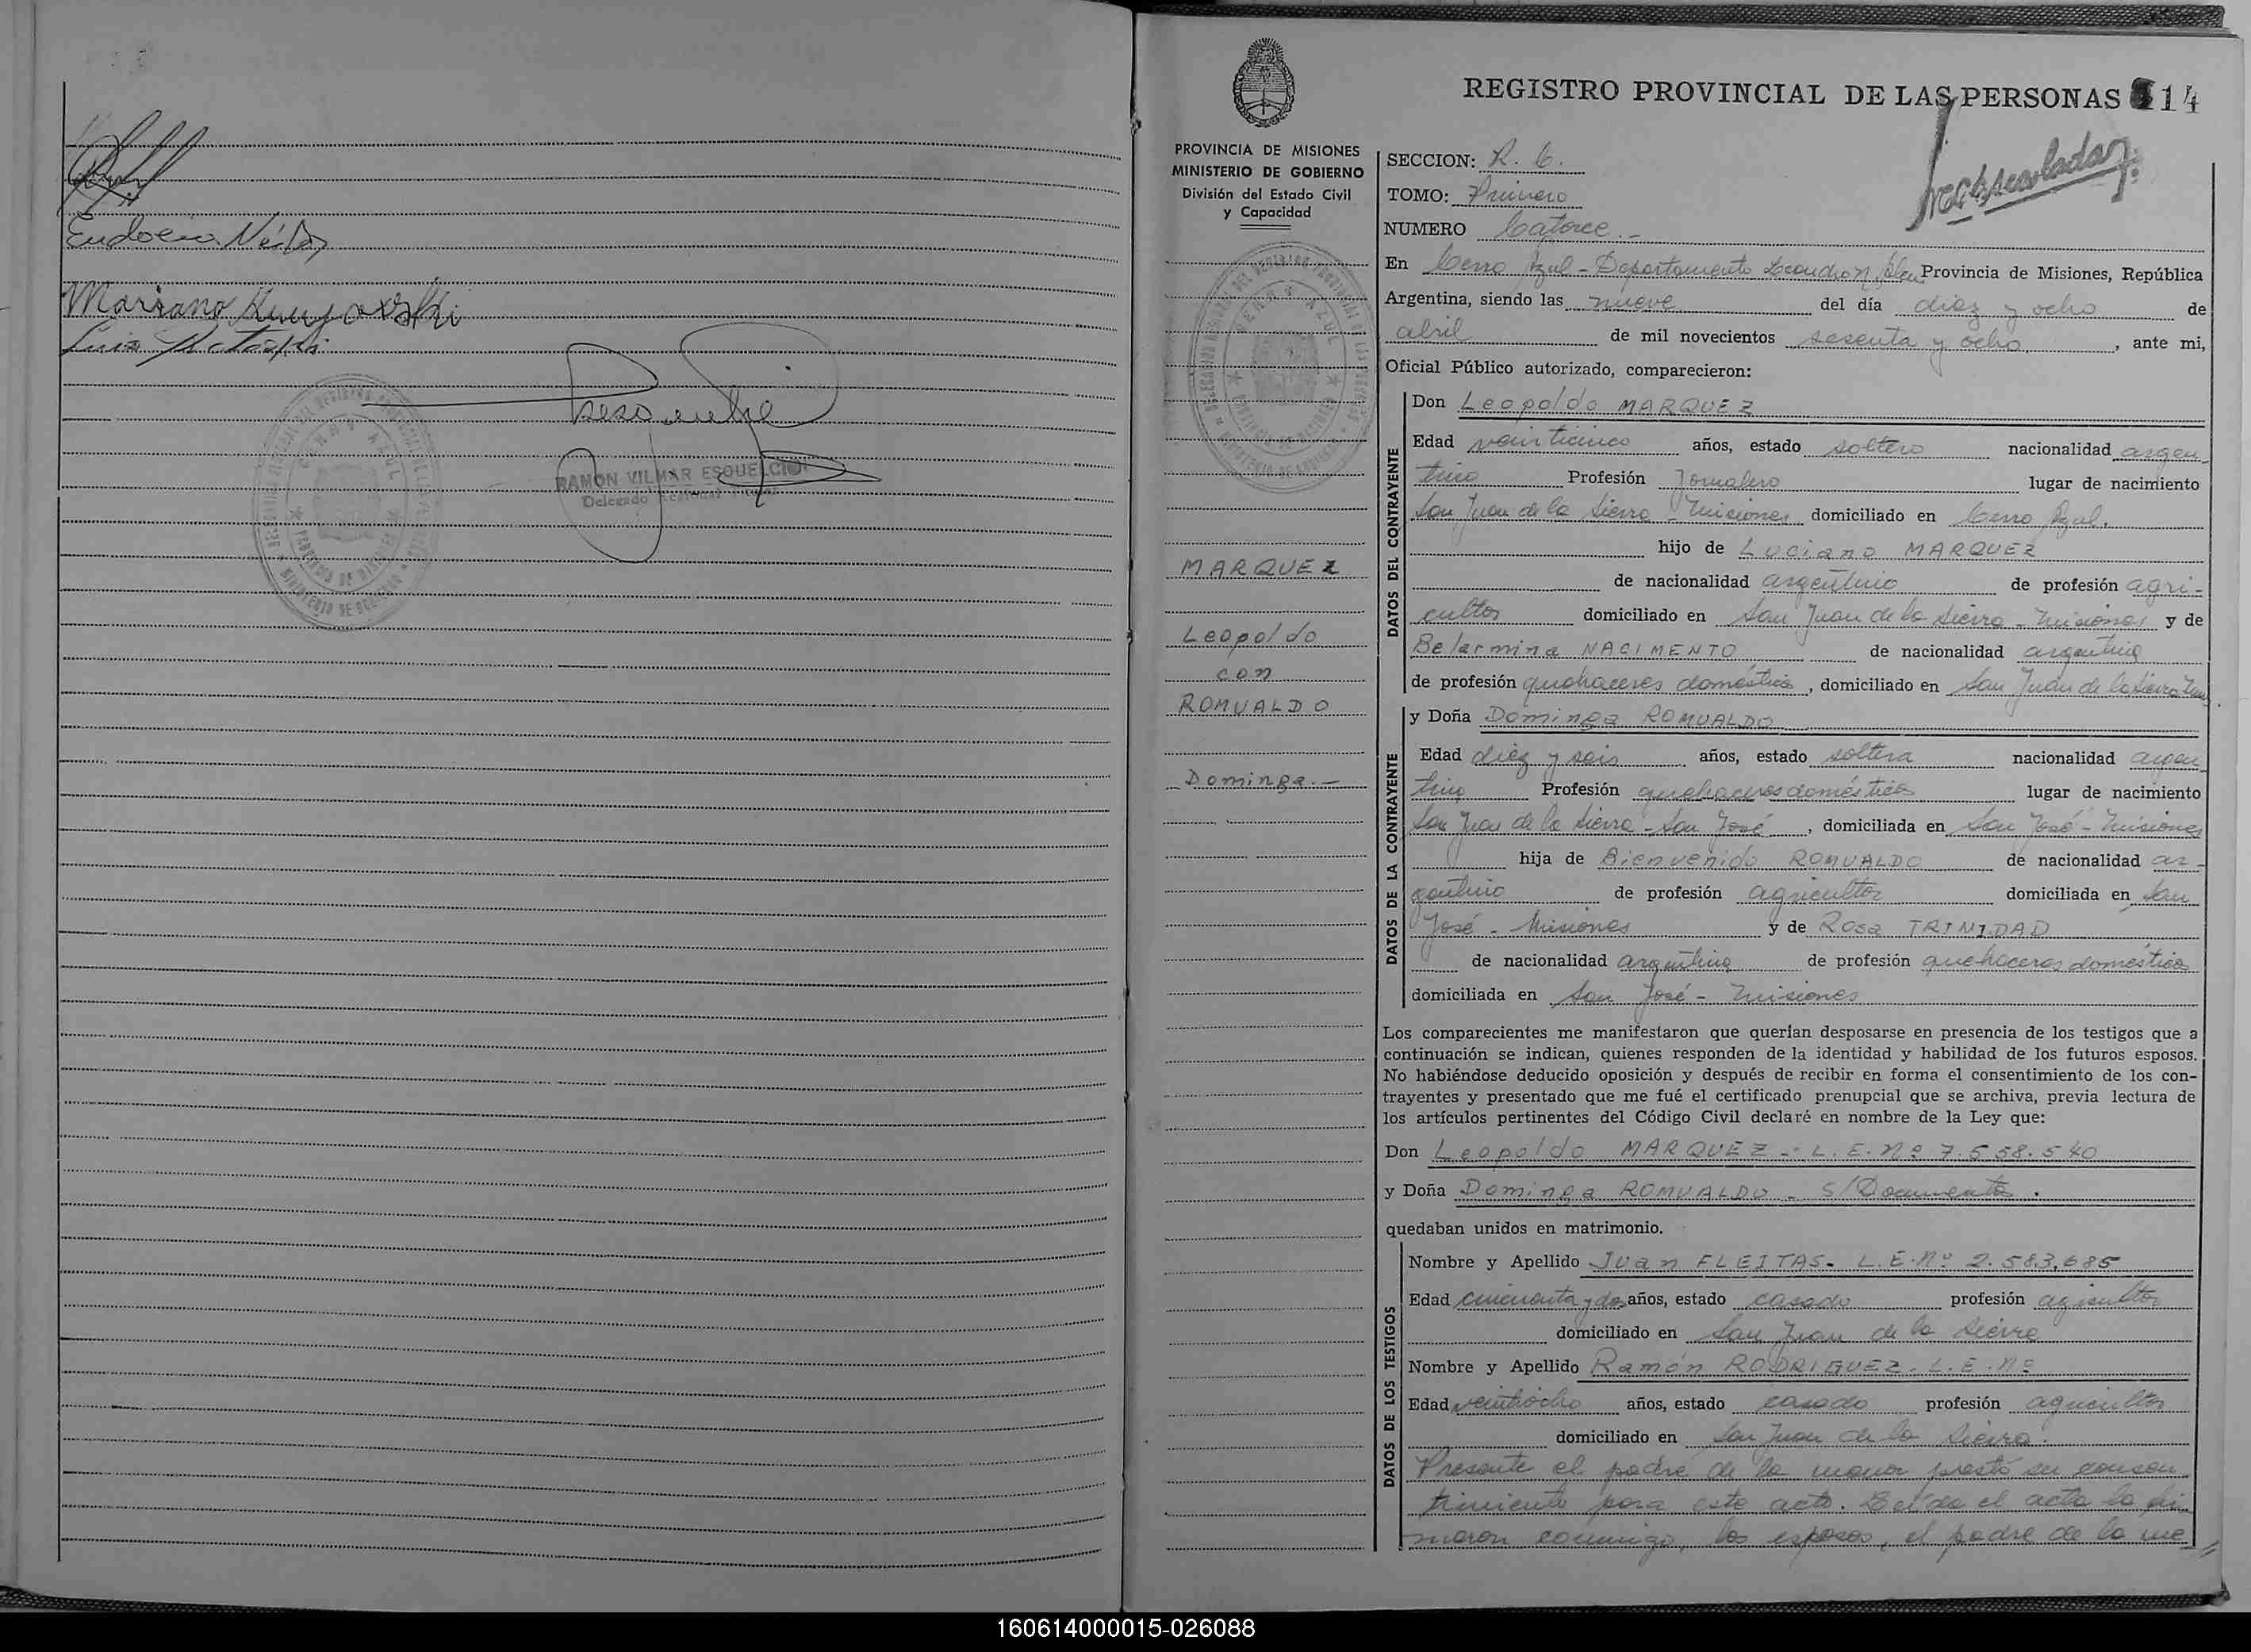 Mariano
RAMON VILMAR ESQUELCIO
Delegado
REGISTRO PROVINCIAL DE LAS PERSONAS 14
PROVINCIA DE MISIONES
MINISTERIO DE GOBIERNO
División del Estado Civil
y Capacidad
MARQUEZ
Leopoldo
con
ROMUALDO
Dominga.-
SECCION: R. C.
TOMO: Primero
NUMERO Catorce.-
En Cerro Azul - Departamento Leandro N. Alem Provincia de Misiones, República
Argentina, siendo las nueve del día diez y ocho de
abril de mil novecientos sesenta y ocho, ante mi,
Oficial Público autorizado, comparecieron:
DATOS DEL CONTRAYENTE
Don Leopoldo MARQUEZ
Edad veinticinco años, estado soltero nacionalidad argen-
tino Profesión Jornalero lugar de nacimiento
San Juan de la Sierra - Misiones domiciliado en Cerro Azul.
hijo de Luciano MARQUEZ
de nacionalidad argentino de profesión agri-
cultor domiciliado en San Juan de la Sierra - Misiones y de
Belarmina NACIMENTO de nacionalidad argentina
de profesión quehaceres domésticos, domiciliado en San Juan de la Sierra
DATOS DE LA CONTRAYENTE
y Doña Dominga ROMUALDO
Edad diez y seis años, estado soltera nacionalidad argen-
tina Profesión quehaceres domésticos lugar de nacimiento
San Juan de la Sierra - San José, domiciliada en San José - Misiones
hija de Bienvenido ROMUALDO de nacionalidad ar-
gentino de profesión agricultor domiciliada en San
José - Misiones y de Rosa TRINIDAD
de nacionalidad argentina de profesión quehaceres domésticos
domiciliada en San José - Misiones
Los comparecientes me manifestaron que querían desposarse en presencia de los testigos que a
continuación se indican, quienes responden de la identidad y habilidad de los futuros esposos.
No habiéndose deducido oposición y después de recibir en forma el consentimiento de los con-
trayentes y presentado que me fué el certificado prenupcial que se archiva, previa lectura de
los artículos pertinentes del Código Civil declaré en nombre de la Ley que:
Don Leopoldo MARQUEZ -. L. E. Nº 7.558.540
y Doña Dominga ROMUALDO - S/Documentos.
quedaban unidos en matrimonio.
DATOS DE LOS TESTIGOS
Nombre y Apellido Juan FLEITAS. L. E. Nº 2.583.685
Edad cincuenta y dos años, estado casado profesión agricultor
domiciliado en San Juan de la Sierra
Nombre y Apellido Ramón RODRIGUEZ. L. E. Nº
Edad veintiocho años, estado casado profesión agricultor
domiciliado en San Juan de la Sierra.
Presente el padre de la menor prestó su consen-
timiento para este acto. Leída el acta la fir-
maron conmigo, los esposos, el padre de la me
160614000015-026088